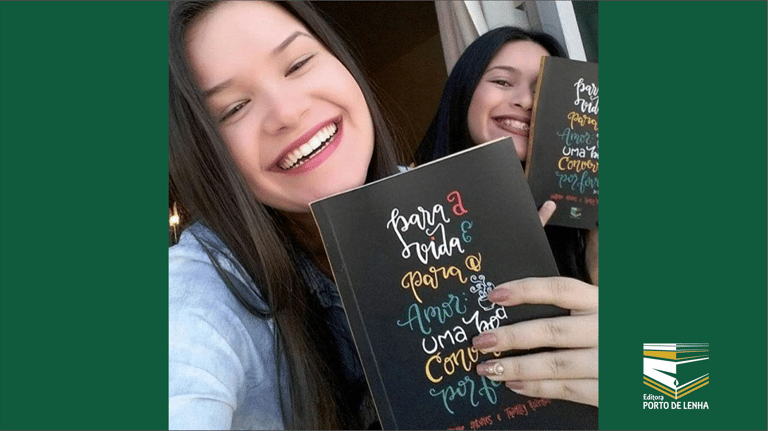 para a
vida e
para o
Amor:
uma boa
Conver
por fa
para
vida
para
Amor:
uma bo
Conver
por fav
Editora
PORTO DE LENHA